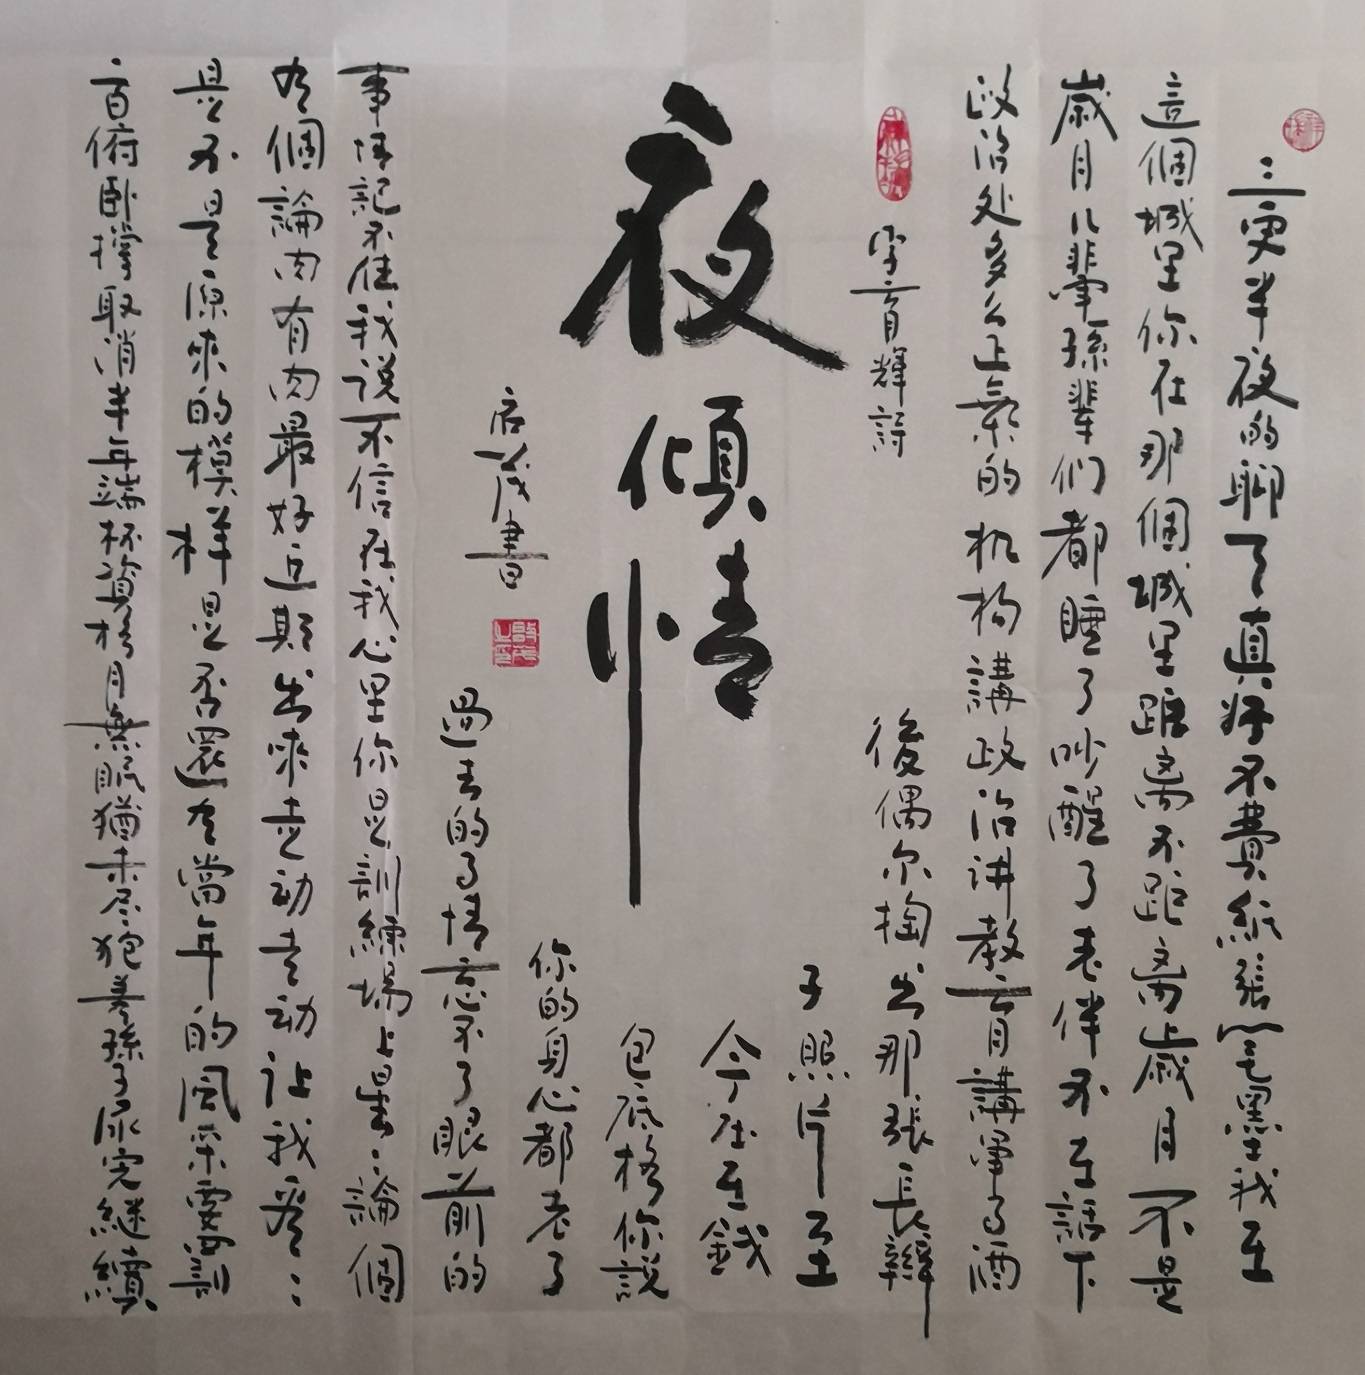 三更半夜的聊了真好不費紙張筆墨我在
這個城里你在那個城里距离不距离歲月不是
歲月儿輩孫輩們都睡了吵醒了老伴不在話下
政治处多么上氣的机构講政治讲教育講軍事酒
後偶尔掏出那張長辮
子照片至
今在錢
包底格你說
你的身心都老了
過去的事情忘不了眼前的
事情記不住我说不信在我心里你是訓練場上星星論個
有個論肉有肉最好近期出來走动走动让我看看
是不是原來的模样是否還有當年的風采要罰
百俯卧撑取消半年端杯資格月無眠猶未尽抱著孫子尿完継續
夜傾情
育輝詩
啟茂書